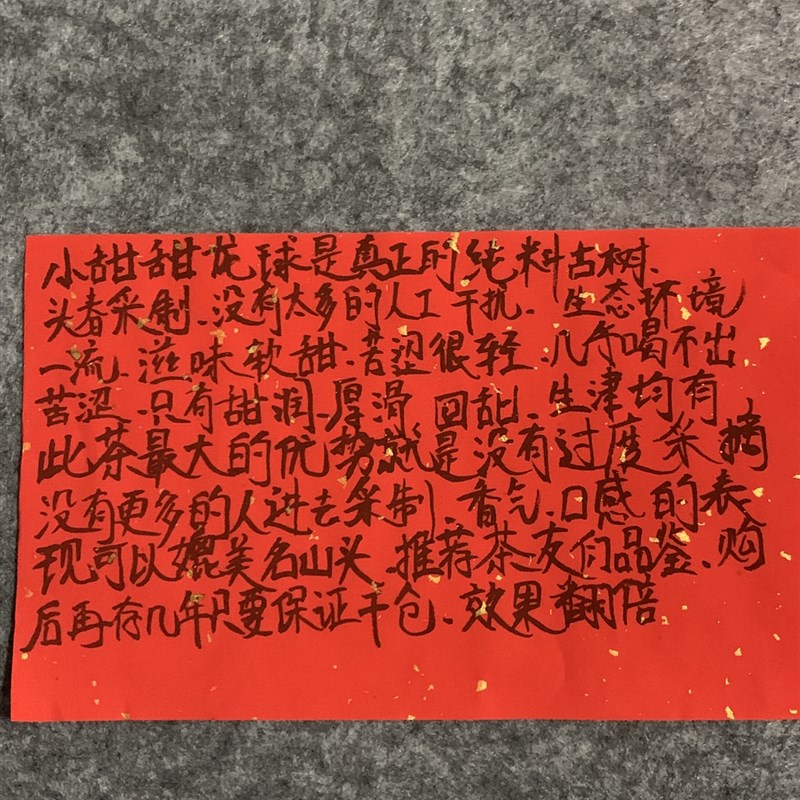 小甜甜龙球是真正的纯料古树、
头春采制、没有太多的人工干扰、生态环境
一流、滋味软甜、苦涩很轻、几乎喝不出
苦涩、只有甜润、厚滑、回甜、生津均有
此茶最大的优势就是没有过度采摘
没有更多的人进去采制、香气、口感的表
现可以媲美名山头、推荐茶友们品鉴、购
后再存几年只要保证干仓、效果翻倍